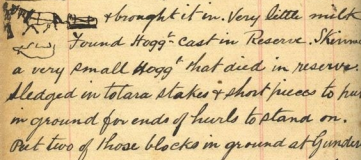 & brought it in. Very little milk
Found Hogg^t cast in Reserve. Skinne
a very small Hogg^t that died in reserve.
Sledged in totara stakes & short pieces to pu
in ground for ends of hurls to stand on.
Put two of those blocks in ground at Gunders